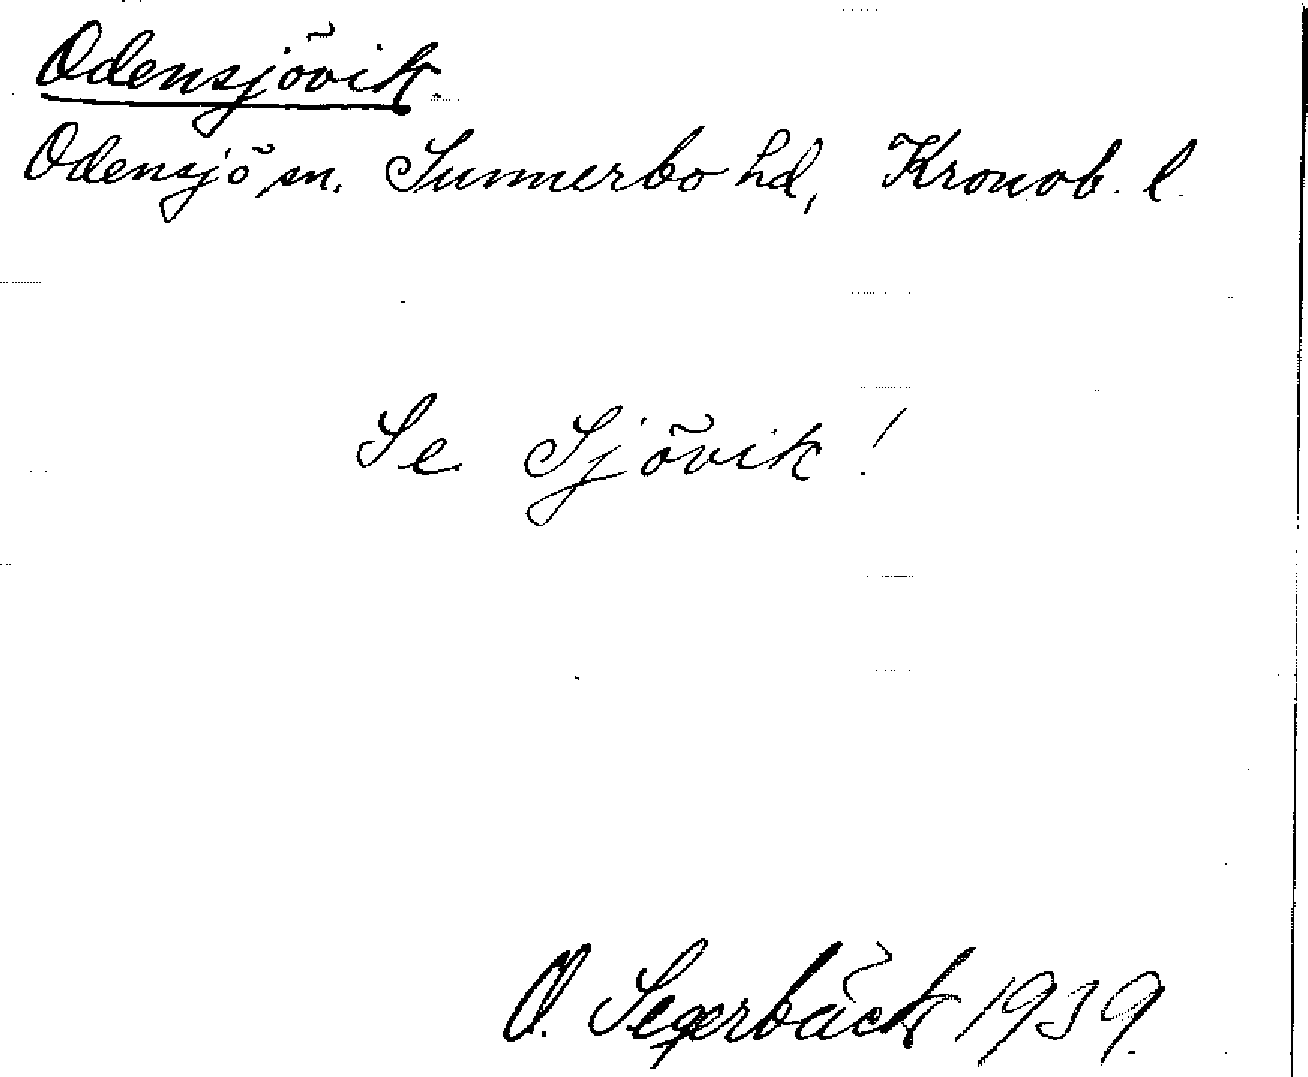 Odensjövik.
Odensjö sn. Sunnerbo hd, Kronob. l.
Se Sjövik!
O. Segerbäck 1939.